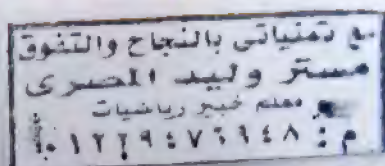 مع تمنياتى بالنجاح والتفوق
مستر وليد المصرى
معلم خبير رياضيات
م : ٠١٢٢٩٤٧٦٦٤٨